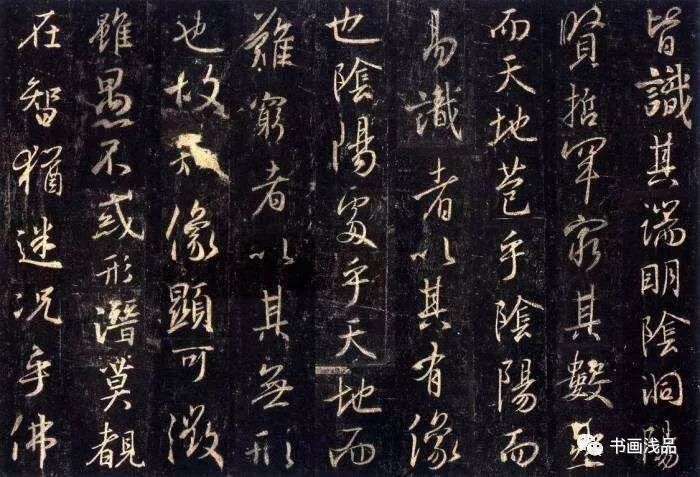 皆識其端明陰洞陽
賢哲罕窮其數
而天地苞乎陰陽而
易識者以其有像
也陰陽處乎天地而
難窮者以其無形
也故像顯可徵
雖愚不惑形潛莫覩
在智猶迷況乎佛
书画浅品